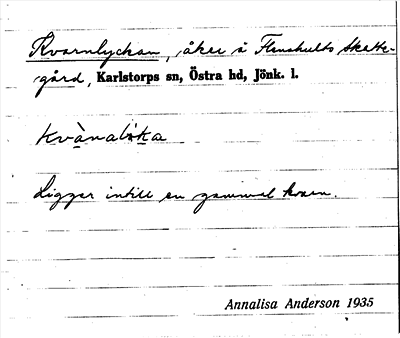 Kvarnlyckan, åker å Flenshults Skatte-
gård, Karlstorps sn, Östra hd, Jönk. l.
Kvànalỳka
Ligger intill en gammal kvarn.
Annalisa Anderson 1935